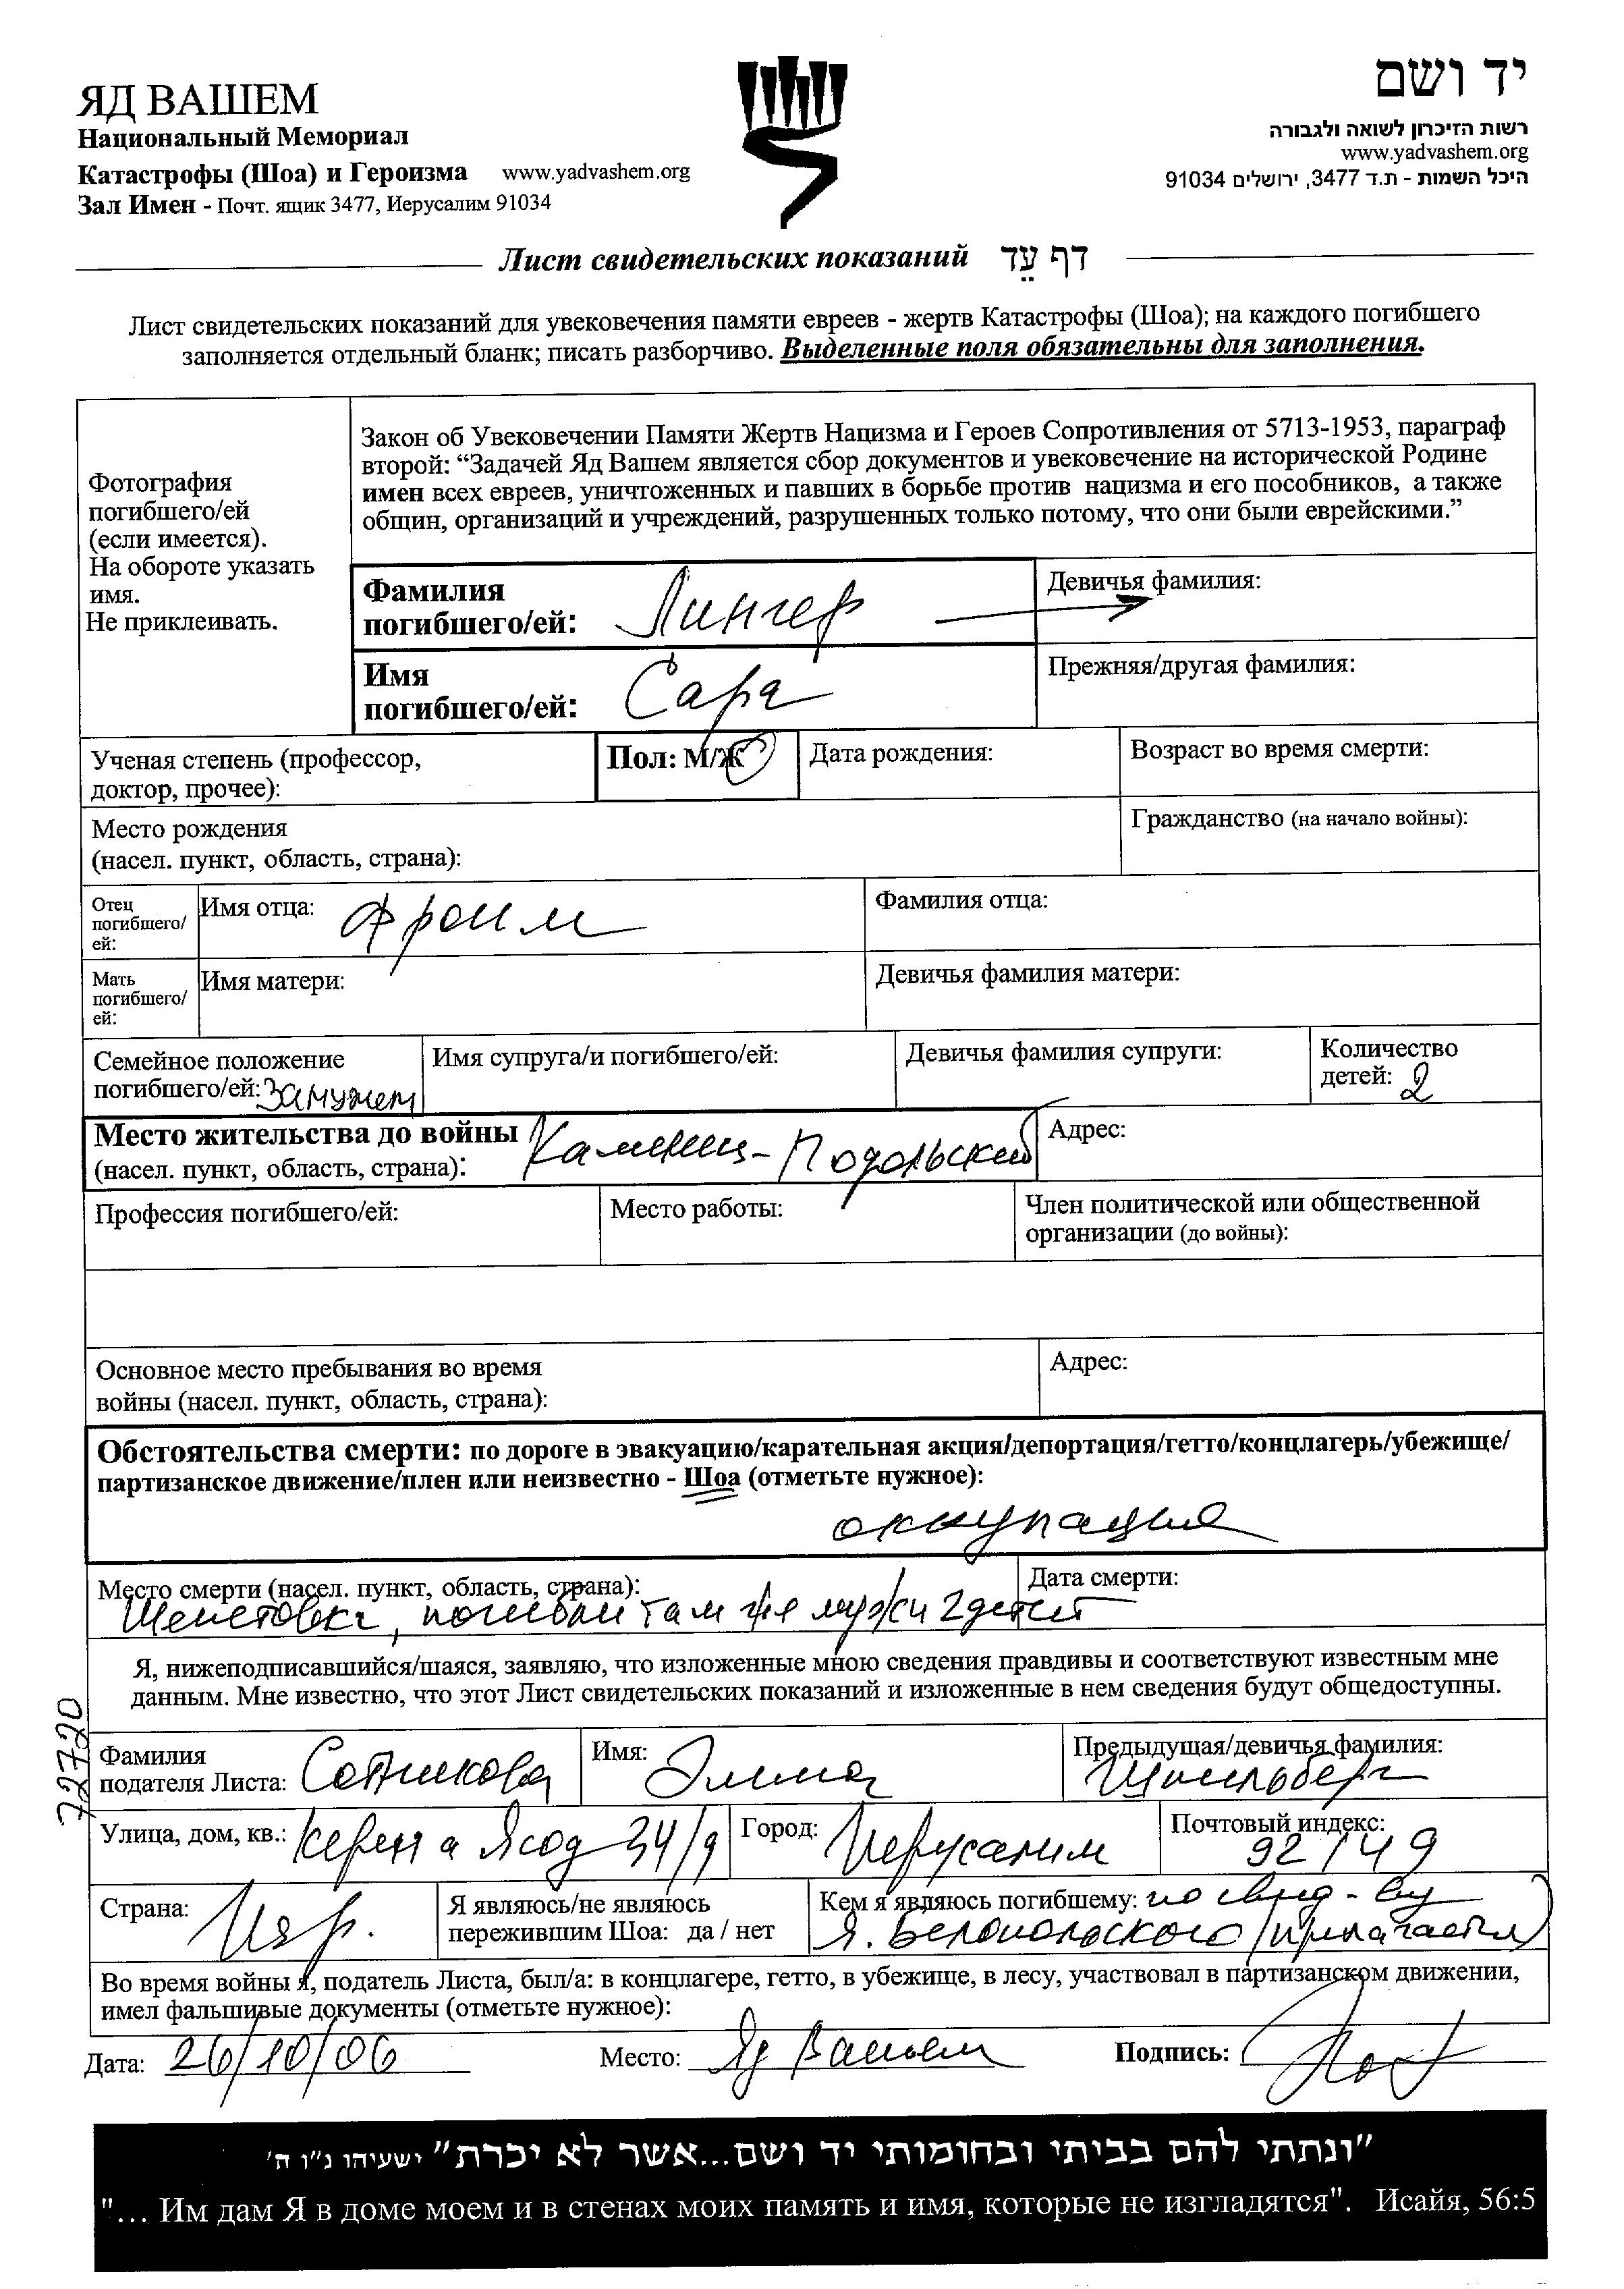 ЯД ВАШЕМ
Национальный Мемориал
Катастрофы (Шоа) и Героизма www.yadvashem.org
Зал Имен - Почт. ящик 3477, Иерусалим 91034
יד ושם
רשות הזיכרון לשואה ולגבורה
www.yadvashem.org
היכל השמות - ת.ד 3477, ירושלים 91034
Лист свидетельских показаний דף עֵד
Лист свидетельских показаний для увековечения памяти евреев - жертв Катастрофы (Шоа); на каждого погибшего
заполняется отдельный бланк; писать разборчиво. Выделенные поля обязательны для заполнения.
Фотография
погибшего/ей
(если имеется).
На обороте указать
имя.
Не приклеивать.
Закон об Увековечении Памяти Жертв Нацизма и Героев Сопротивления от 5713-1953, параграф
второй: “Задачей Яд Вашем является сбор документов и увековечение на исторической Родине
имен всех евреев, уничтоженных и павших в борьбе против нацизма и его пособников, а также
общин, организаций и учреждений, разрушенных только потому, что они были еврейскими.”
Фамилия
погибшего/ей: Лингер
Девичья фамилия:
Имя
погибшего/ей: Сара
Прежняя/другая фамилия:
Ученая степень (профессор,
доктор, прочее):
Пол: М/Ж
Дата рождения:
Возраст во время смерти:
Место рождения
(насел. пункт, область, страна):
Гражданство (на начало войны):
Отец
погибшего/
ей:
Имя отца: Фроим
Фамилия отца:
Мать
погибшего/
ей:
Имя матери:
Девичья фамилия матери:
Семейное положение
погибшего/ей: Замужем
Имя супруга/и погибшего/ей:
Девичья фамилия супруги:
Количество
детей: 2
Место жительства до войны
(насел. пункт, область, страна): Каменец-Подольский
Адрес:
Профессия погибшего/ей:
Место работы:
Член политической или общественной
организации (до войны):
Основное место пребывания во время
войны (насел. пункт, область, страна):
Адрес:
Обстоятельства смерти: по дороге в эвакуацию/карательная акция/депортация/гетто/концлагерь/убежище/
партизанское движение/плен или неизвестно - Шоа (отметьте нужное):
оккупация
Место смерти (насел. пункт, область, страна):
Дата смерти:
Шепетовка, погибли там же муж и 2 детей
Я, нижеподписавшийся/шаяся, заявляю, что изложенные мною сведения правдивы и соответствуют известным мне
данным. Мне известно, что этот Лист свидетельских показаний и изложенные в нем сведения будут общедоступны.
72720
Фамилия
подателя Листа: Сотникова
Имя: Элина
Предыдущая/девичья фамилия:
Шпильберг
Улица, дом, кв.: Керен а Ясод 34/9
Город: Иерусалим
Почтовый индекс:
92149
Страна: Изр.
Я являюсь/не являюсь
пережившим Шоа: да / нет
Кем я являюсь погибшему: по свид-ву
Я. Белопольского (прилагается)
Во время войны я, податель Листа, был/а: в концлагере, гетто, в убежище, в лесу, участвовал в партизанском движении,
имел фальшивые документы (отметьте нужное):
Дата: 26/10/06 Место: Яд Вашем Подпись:
"ונתתי להם בביתי ובחומותי יד ושם...אשר לא יכרת" ישעיהו נ"ו ה'
"... Им дам Я в доме моем и в стенах моих память и имя, которые не изгладятся". Исайя, 56:5